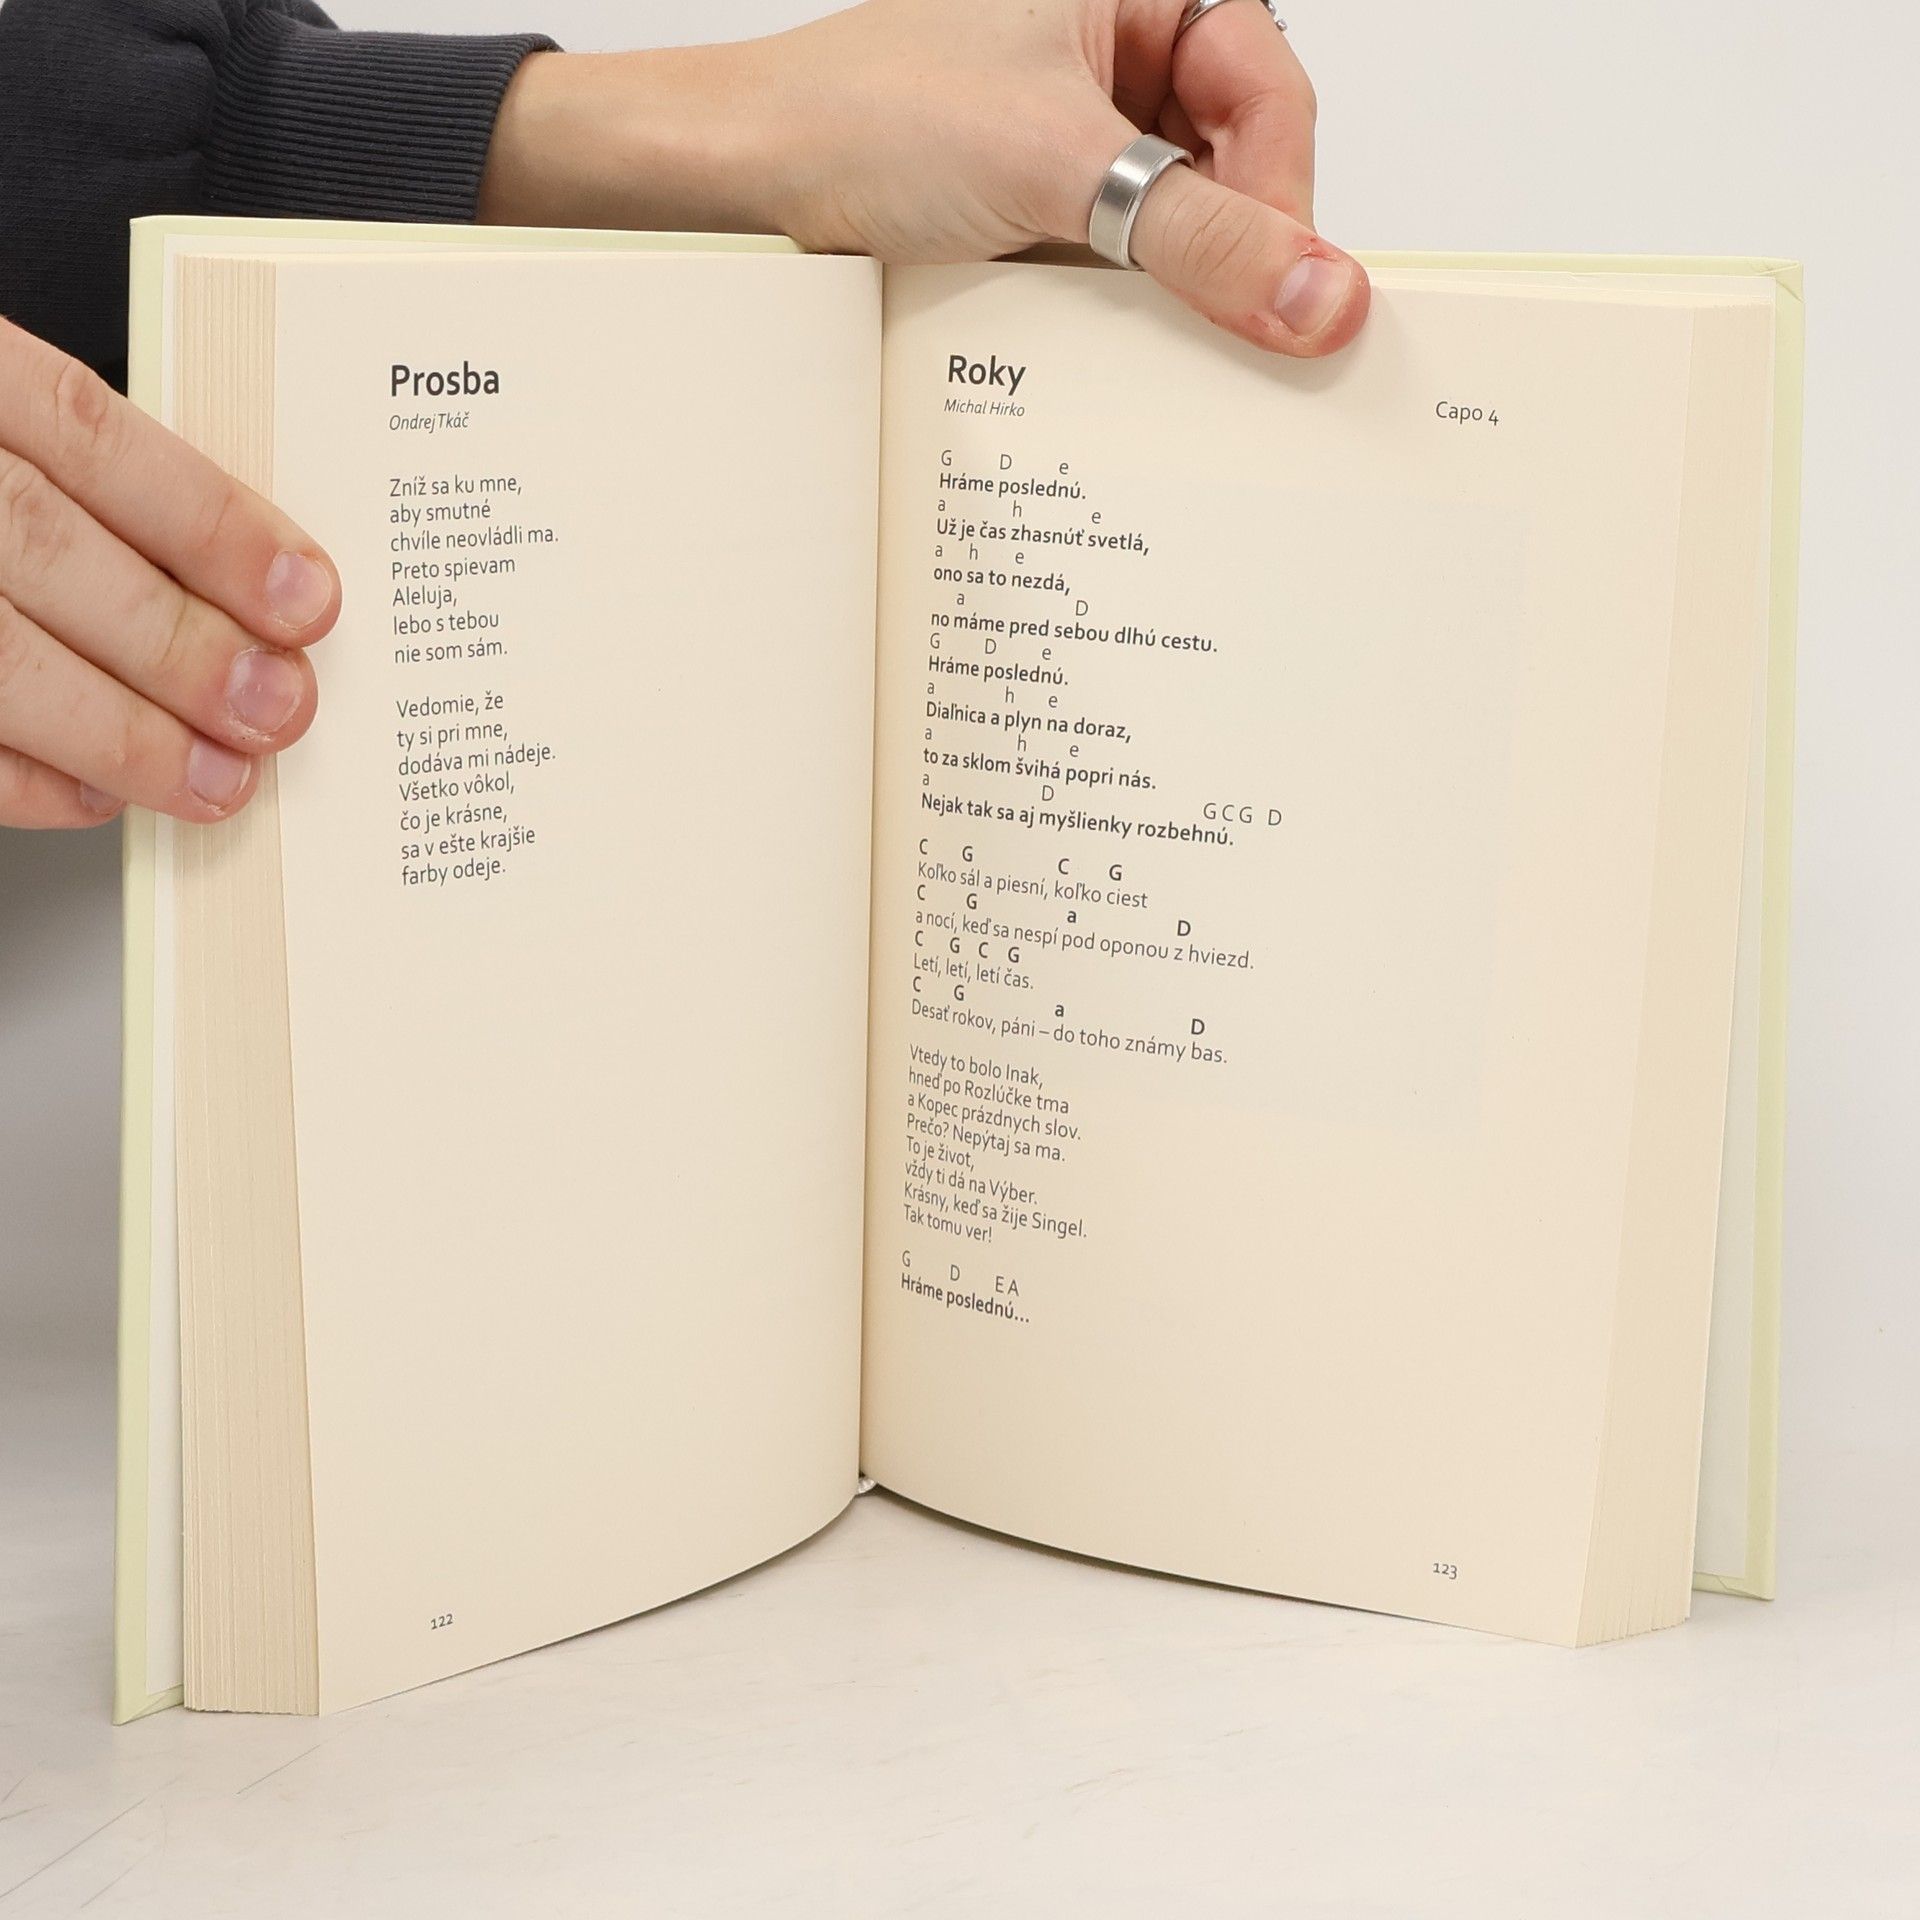 Prosba
Ondrej Tkáč
Zníž sa ku mne,
aby smutné
chvíle neovládli ma.
Preto spievam
Aleluja,
lebo s tebou
nie som sám.
Vedomie, že
ty si pri mne,
dodáva mi nádeje.
Všetko vôkol,
čo je krásne,
sa v ešte krajšie
farby odeje.
122
Roky
Michal Hirko
Capo 4
G D e
Hráme poslednú.
a h e
Už je čas zhasnúť svetlá,
a h e
ono sa to nezdá,
a D
no máme pred sebou dlhú cestu.
G D e
Hráme poslednú.
a h e
Diaľnica a plyn na doraz,
a h e
to za sklom švihá popri nás.
a D G C G D
Nejak tak sa aj myšlienky rozbehnú.
C G C G
Koľko sál a piesní, koľko ciest
C G a D
a nocí, keď sa nespí pod oponou z hviezd.
C G C G
Letí, letí, letí čas.
C G a D
Desať rokov, páni – do toho známy bas.
Vtedy to bolo Inak,
hneď po Rozlúčke tma
a Kopec prázdnych slov.
Prečo? Nepýtaj sa ma.
To je život,
vždy ti dá na Výber.
Krásny, keď sa žije Singel.
Tak tomu ver!
G D E A
Hráme poslednú...
123